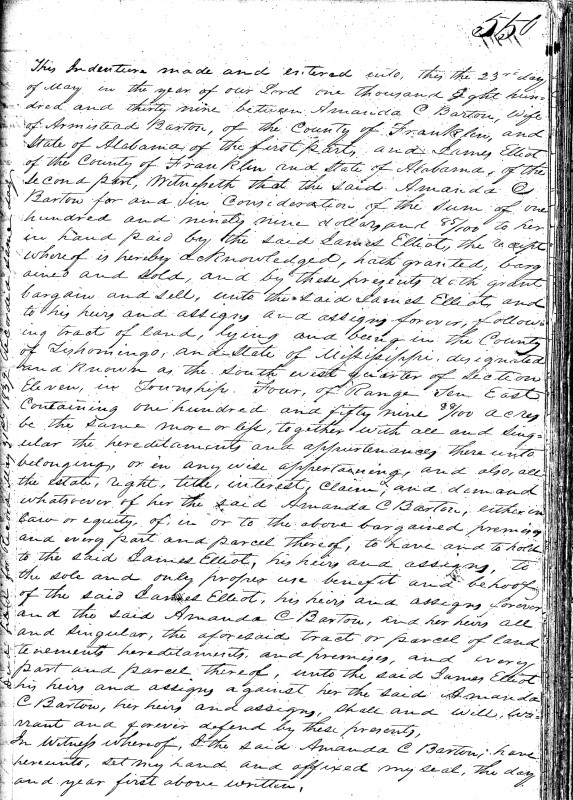 550
This Indenture made and entered into, this the 23rd day
of May in the year of our Lord one thousand Eight hun-
dred and thirty nine between Amanda C Barton, Wife
of Armistead Barton, of the County of Franklin, and
State of Alabama of the first part, and James Elliot
of the County of Franklin and State of Alabama, of the
Second part, Witnesseth that the said Amanda C
Barton for and in Consideration of the sum of one
hundred and ninety nine dollars and 85/100 to her
in hand paid by the said James Elliot, the receipt
whereof is hereby acknowledged, hath granted, barg
ained and sold, and by these presents doth grant
bargain and sell, unto the said James Elliot, and
to his heirs and assigns and assigns forever, follow-
ing tract of land, lying and being in the County
of Tishomingo, and State of Mississippi, designated
and known as the South west quarter of Section
Eleven, in Township Four, of Range Ten East
Containing one hundred and fifty nine 88/100 acres
be the same more or less, together with all and Sing-
ular the hereditaments and appurtenances there unto
belonging, or in any wise appertaining, and also, all
the estate, right, title, interest, claim, and demand
whatsoever of her the said Amanda C Barton, either in
law or equity, of, in or to the above bargained premises
and every part and parcel thereof, to have and to hold
to the said James Elliot, his heirs and assigns, to
the sole and only proper use benefit and behoof
of the said James Elliot, his heirs and assigns forever
and the said Amanda C Barton, and her heirs all
and singular, the aforesaid tract or parcel of land
tenements hereditaments, and premises, and every
part and parcel thereof, unto the said James Elliot
his heirs and assigns against her the said Amanda
C Barton, her heirs and assigns, shall and will, wa-
rrant and forever defend by these presents,
In Witness whereof, I the said Amanda C Barton, have
hereunto, set my hand and affixed my seal, the day
and year first above written,